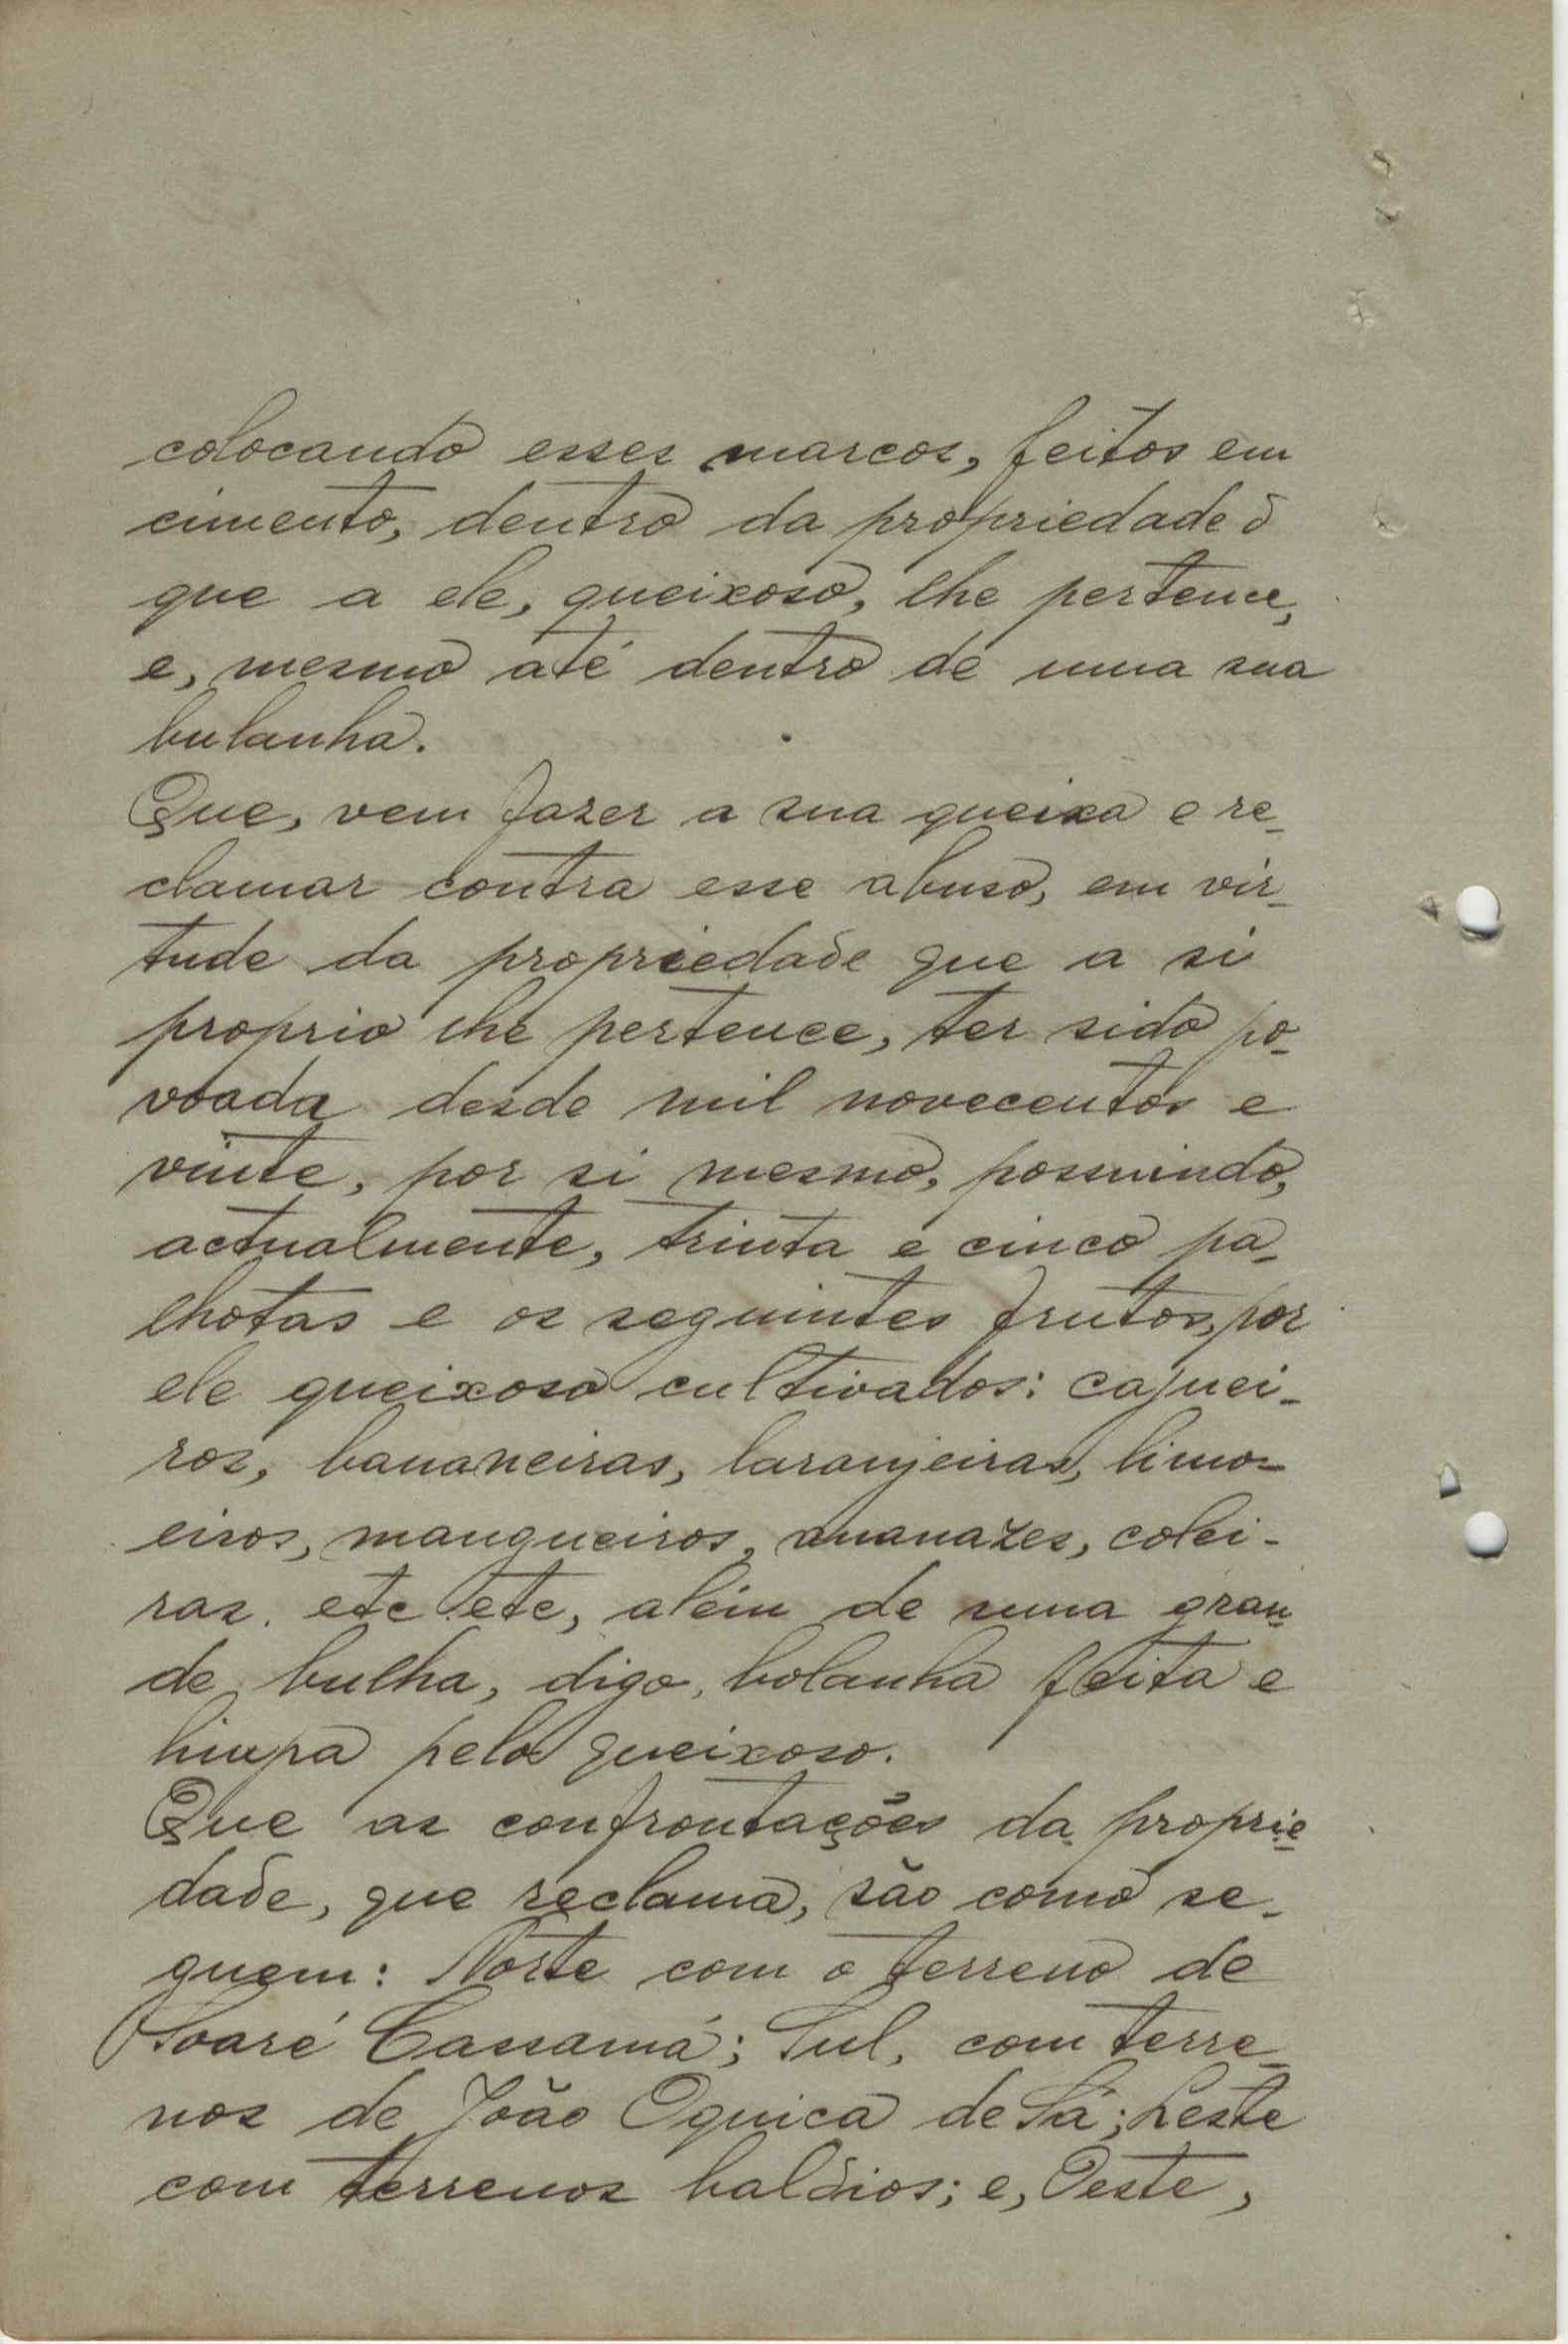 colocando esses marcos, feitos em
cimento, dentro da propriedade
que a ele, queixoso, lhe pertence,
e, mesmo até dentro de uma sua
bulanha.
Que, vem fazer a sua queixa e re-
clamar contra esse abuso, em vir-
tude da propriedade que a si
proprio lhe pertence, ter sido po-
voada desde mil novecentos e
vinte, por si mesmo, possuindo,
actualmente, trinta e cinco pa-
lhotas e os seguintes frutos, por
ele queixoso cultivados: cajuei-
ros, bananeiras, laranjeiras, limo-
eiros, mangueiros, ananazes, colei-
ras. etc etc, além de uma gran-
de bulha, digo, bolanha feita e
limpa pelo queixoso.
Que as confrontações da proprie-
dade, que reclama, são como se-
guem: Norte com o terreno de
Soaré Cassamá; Sul, com terre-
nos de João Oquica de Sá; Leste
com terrenos baldios; e, Oeste,